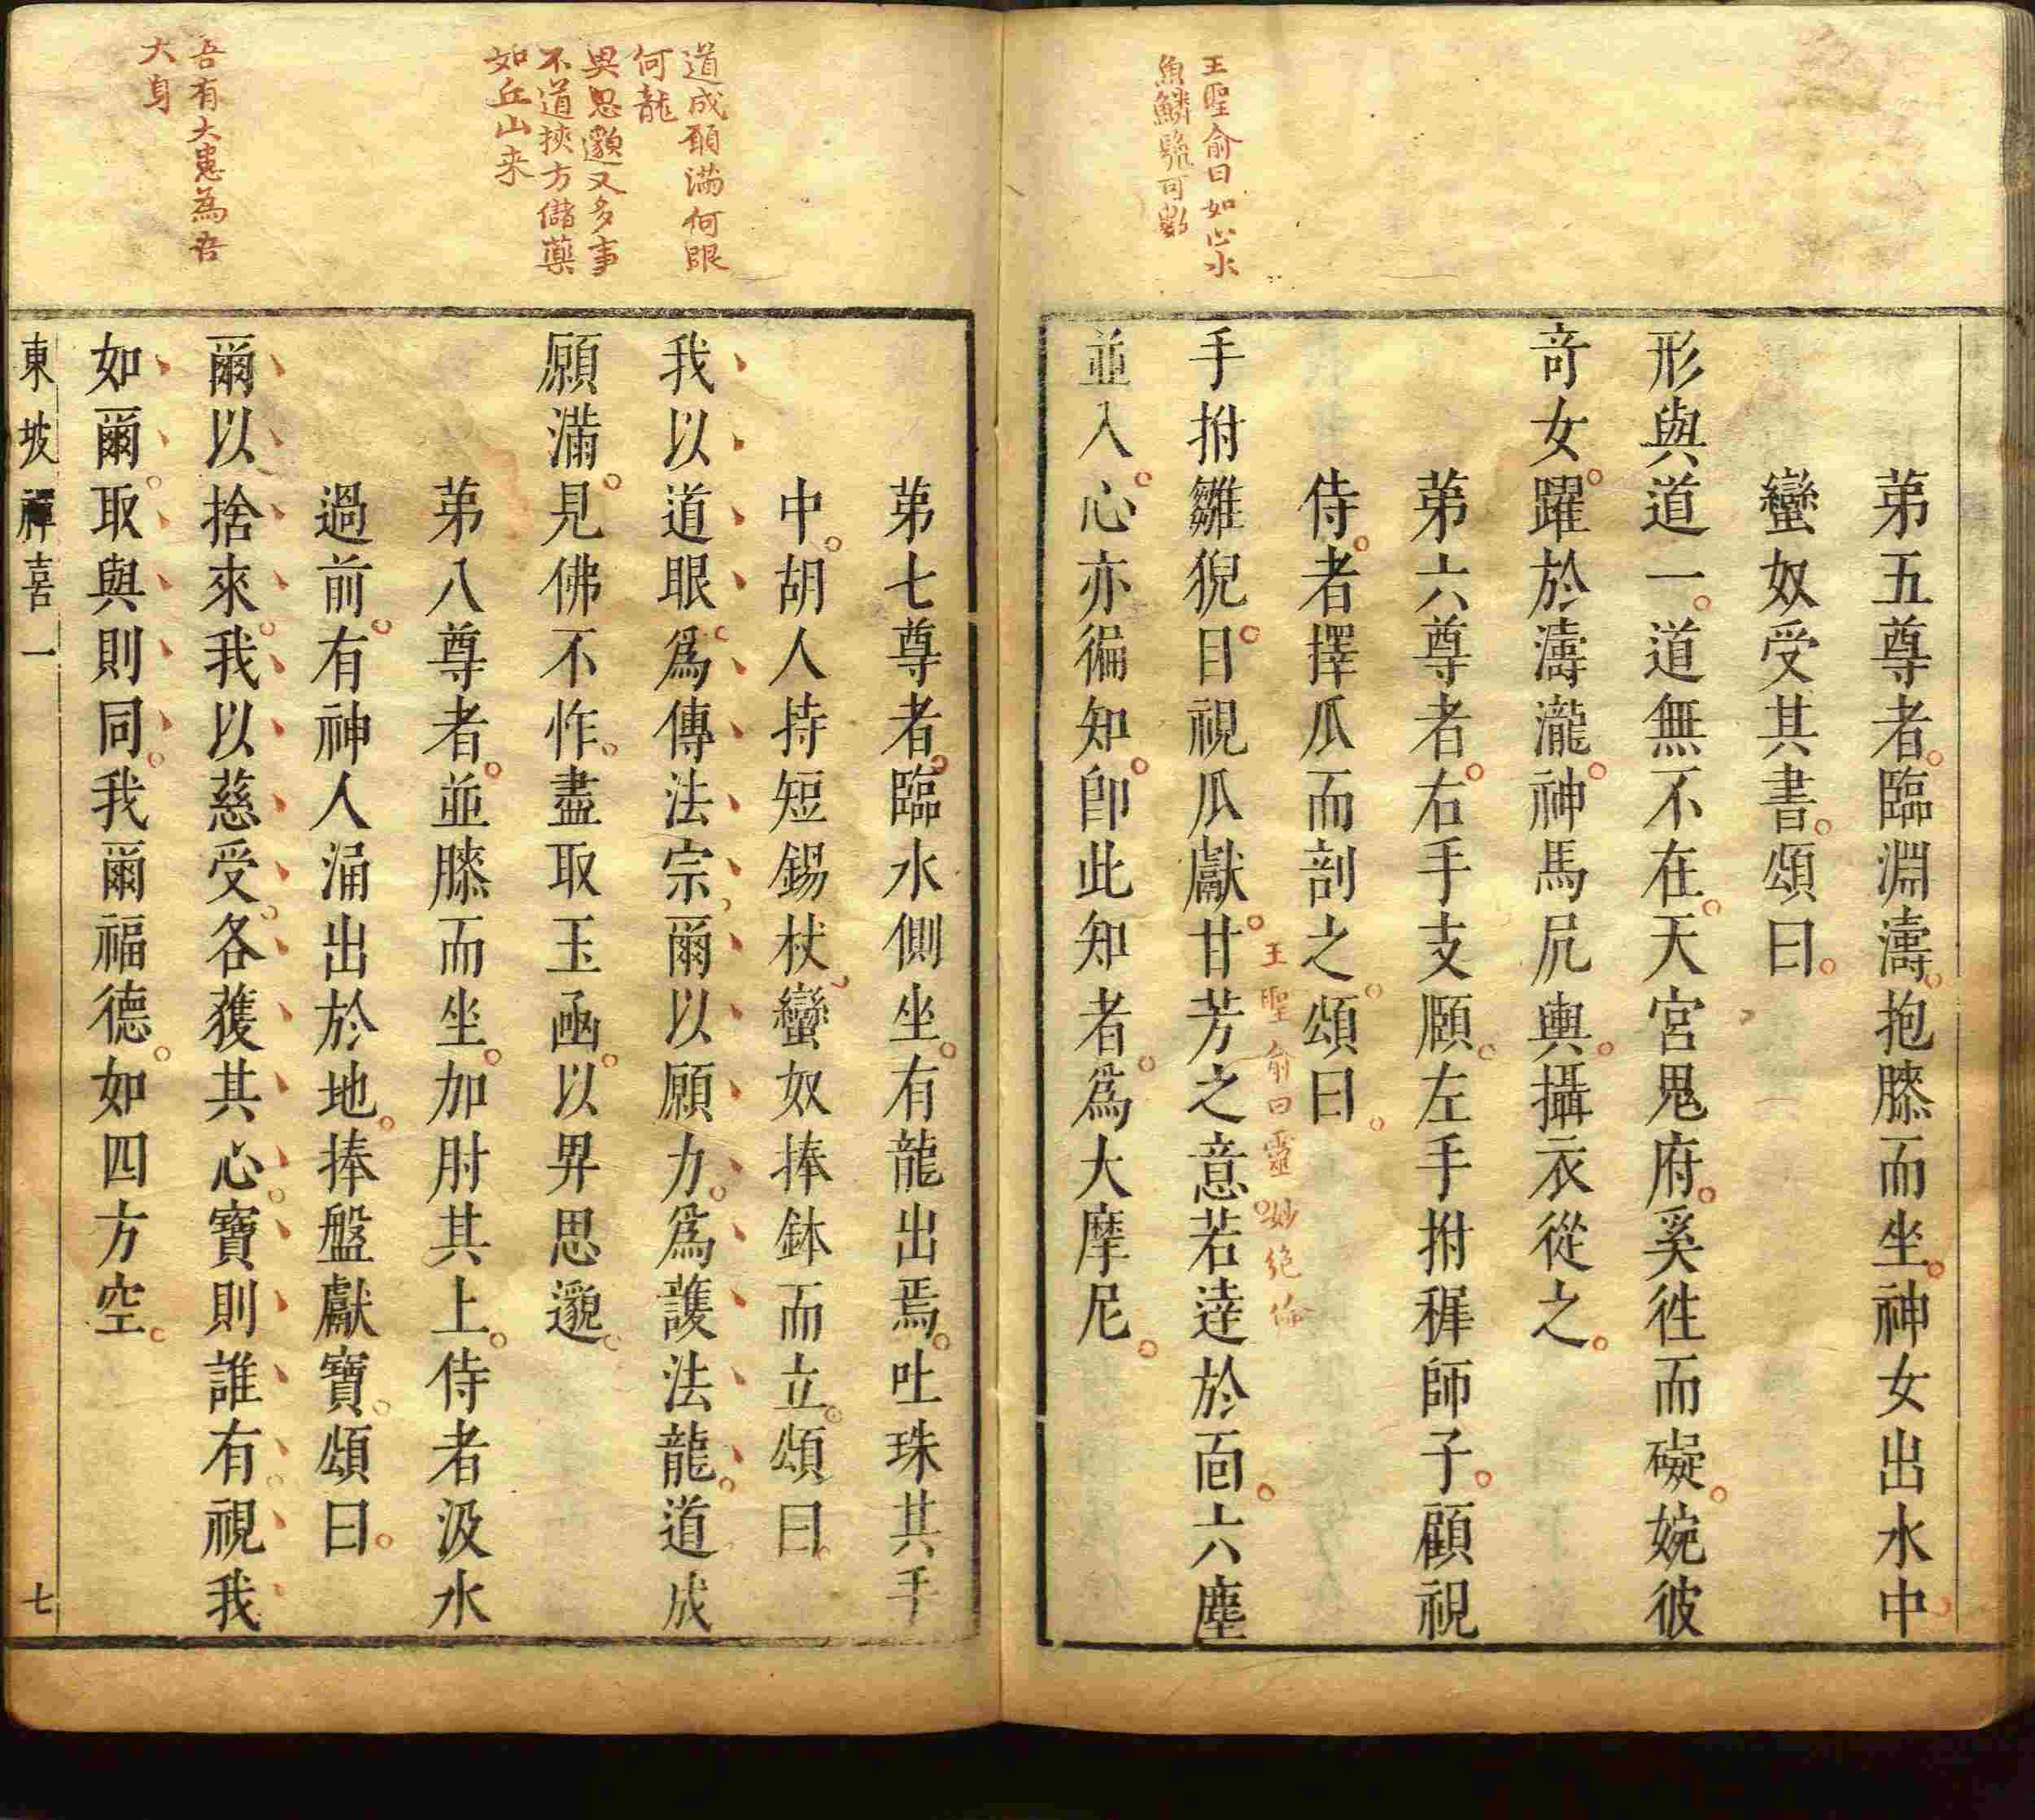 王聖俞曰如止水
魚鱗鬣可數
第五尊者臨淵濤抱膝而坐神女出水中
蠻奴受其書頌曰
形與道一道無不在天宮鬼府奚徃而礙婉彼
竒女躍於濤瀧神馬尻輿攝衣從之
第六尊者右手支頤左手拊穉師子顧視
侍者擇瓜而剖之頌曰
王聖俞曰靈妙絶倫
手拊雛猊目視瓜獻甘芳之意若達於面六塵
並入心亦徧知卽此知者爲大摩尼
道成願滿何眼
何龍
畀思邈又多事
不道挾方儲藥
如丘山来
吾有大患為吾
大身
第七尊者臨水側坐有龍出焉吐珠其手
中胡人持短錫杖蠻奴捧鉢而立頌曰
我以道眼爲傳法宗爾以願力爲護法龍道成
願滿見佛不怍盡取玉函以畀思邈
第八尊者並膝而坐加肘其上侍者汲水
過前有神人涌出於地捧盤獻寶頌曰
爾以捨來我以慈受各獲其心寶則誰有視我
如爾取與則同我爾福德如四方空
東坡禪喜一
七